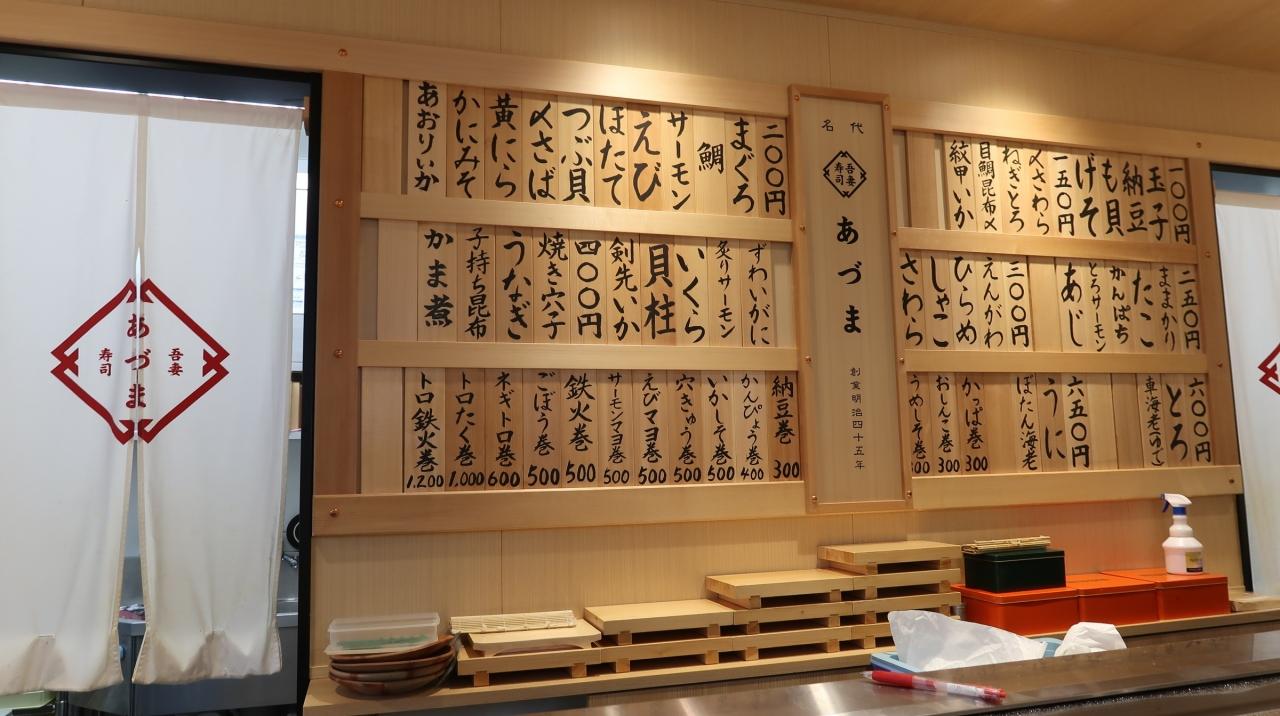 一〇〇円
玉子
納豆
も貝
げそ
一五〇円
〆さわら
ねぎとろ
目鯛昆布〆
紋甲いか
二五〇円
ままかり
たこ
かんぱち
とろサーモン
あじ
三〇〇円
えんがわ
ひらめ
しゃこ
さわら
六〇〇円
とろ
車海老(ゆで)
六五〇円
うに
ぼたん海老
かっぱ巻 300
おしんこ巻 300
うめしそ巻 300
名代
吾妻寿司
あづま
創業明治四十五年
二〇〇円
まぐろ
鯛
サーモン
えび
ほたて
つぶ貝
〆さば
黄にら
かにみそ
あおりいか
ずわいがに
炙りサーモン
いくら
貝柱
剣先いか
四〇〇円
焼き穴子
うなぎ
子持ち昆布
かま煮
納豆巻 300
かんぴょう巻 400
いかしそ巻 500
穴きゅう巻 500
えびマヨ巻 500
サーモンマヨ巻 500
鉄火巻 500
ごぼう巻 500
ネギトロ巻 600
トロたく巻 1,000
トロ鉄火巻 1,200
吾妻
あづま
寿司